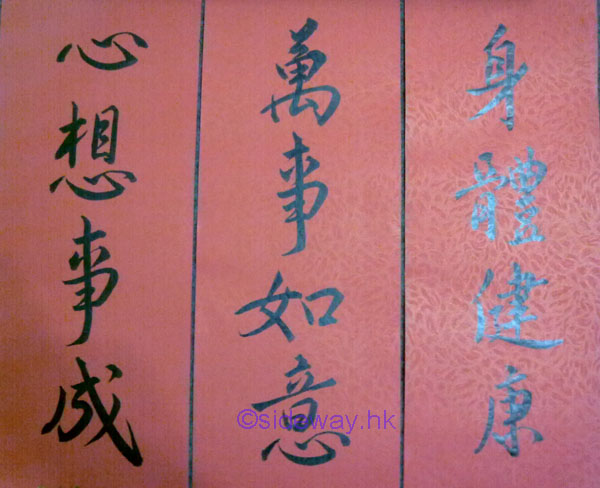 身體健康
萬事如意
心想事成
©sideway.hk